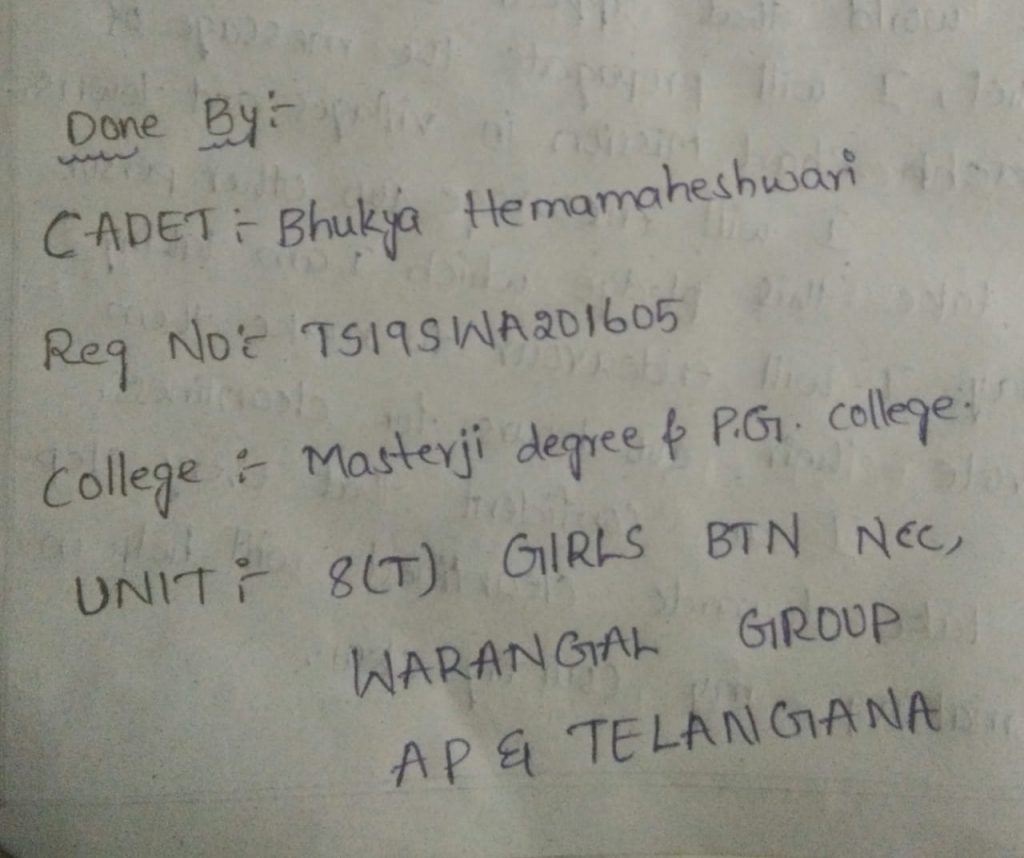 Done By:-
CADET :- Bhukya Hemamaheshwari
Reg No:- TS19SWA201605
College :- Masterji degree & P.G. college.
UNIT :- 8(T) GIRLS BTN NCC,
WARANGAL GROUP
AP & TELANGANA